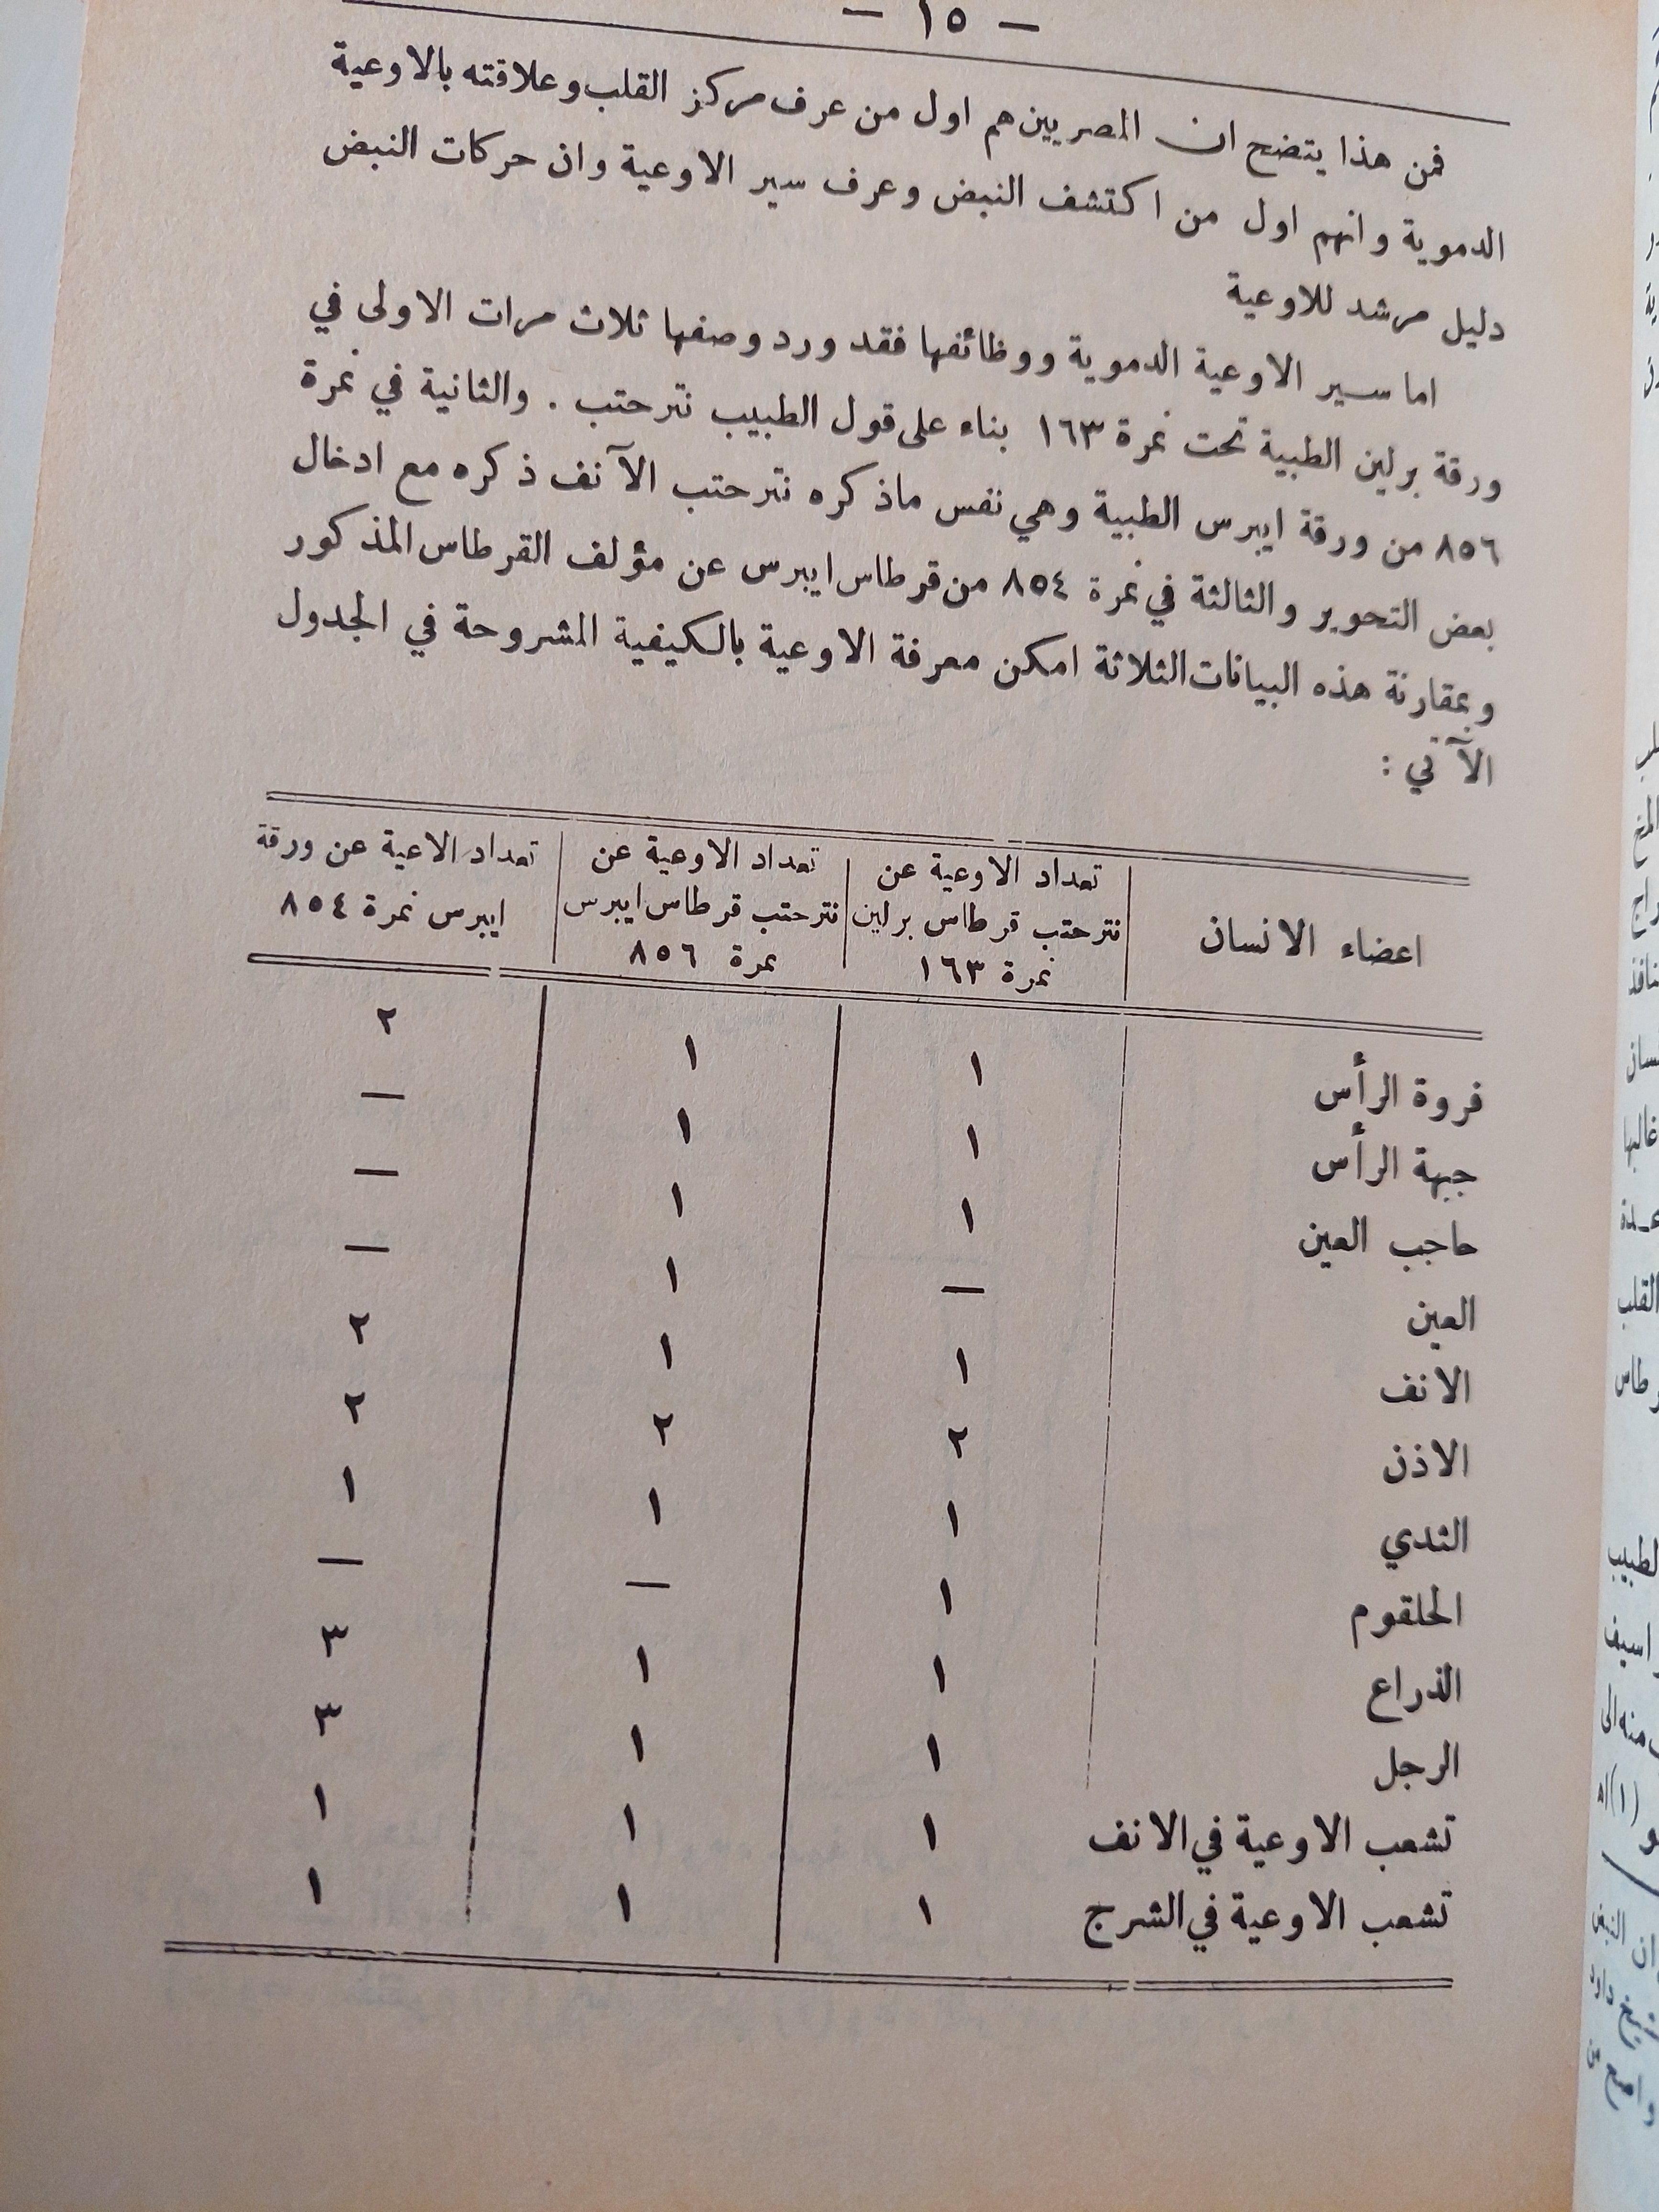 — ١٥ —
فمن هذا يتضح ان المصريين هم اول من عرف مركز القلب وعلاقته بالاوعية
الدموية وانهم اول من اكتشف النبض وعرف سير الاوعية وان حركات النبض
دليل مرشد للاوعية
اما سير الاوعية الدموية ووظائفها فقد ورد وصفها ثلاث مرات الاولى في
ورقة برلين الطبية تحت نمرة ١٦٣ بناء على قول الطبيب نترحتب . والثانية في نمرة
٨٥٦ من ورقة ايبرس الطبية وهي نفس ماذكره نترحتب الآنف ذكره مع ادخال
بعض التحوير والثالثة في نمرة ٨٥٤ من قرطاس ايبرس عن مؤلف القرطاس المذكور
وبمقارنة هذه البيانات الثلاثة امكن معرفة الاوعية بالكيفية المشروحة في الجدول
الآتي :
اعضاء الانسان
تعداد الاوعية عن
نترحتب قرطاس برلين
نمرة ١٦٣
تعداد الاوعية عن
نترحتب قرطاس ايبرس
نمرة ٨٥٦
تعداد الاعية عن ورقة
ايبرس نمرة ٨٥٤
فروة الرأس ١ ١ ٢
جبهة الرأس ١ ١ —
حاجب العين ١ ١ —
العين — ١ —
الانف ١ ١ ٢
الاذن ٢ ٢ ٢
الثدي ١ ١ ١
الحلقوم ١ — —
الذراع ١ ١ ٣
الرجل ١ ١ ٣
تشعب الاوعية في الانف ١ ١ ١
تشعب الاوعية في الشرج ١ ١ ١
القلب